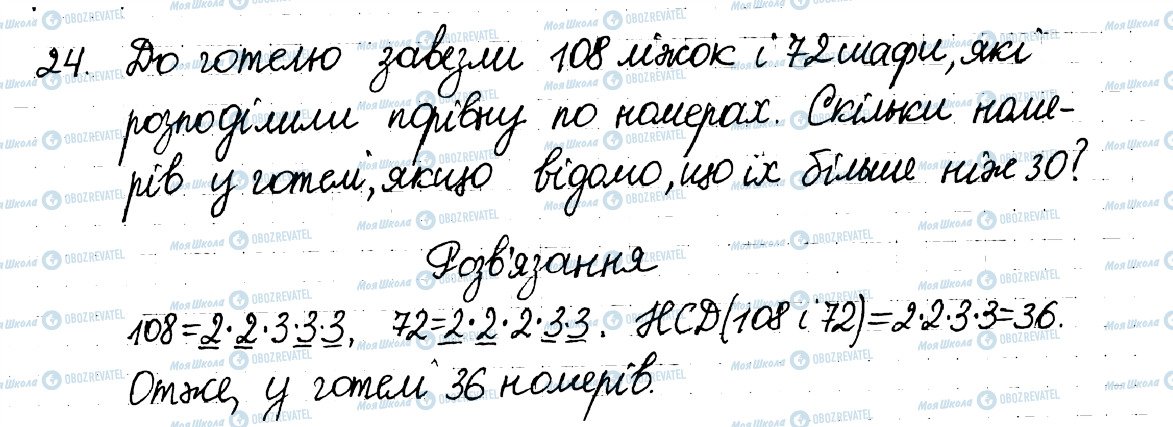 24. До готелю завезли 108 ліжок і 72 шафи, які
розподілили порівну по номерах. Скільки номе-
рів у готелі, якщо відомо, що їх більше ніж 30?
Розв'язання
108=2·2·3·3·3, 72=2·2·2·3·3. НСД(108 і 72)=2·2·3·3=36.
Отже, у готелі 36 номерів.
МояШкола OBOZREVATEL